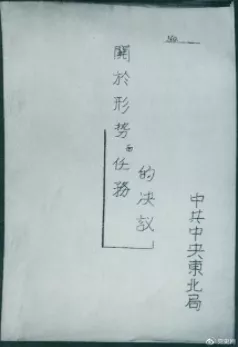 關於形势与任務
的决议
中共中央東北局